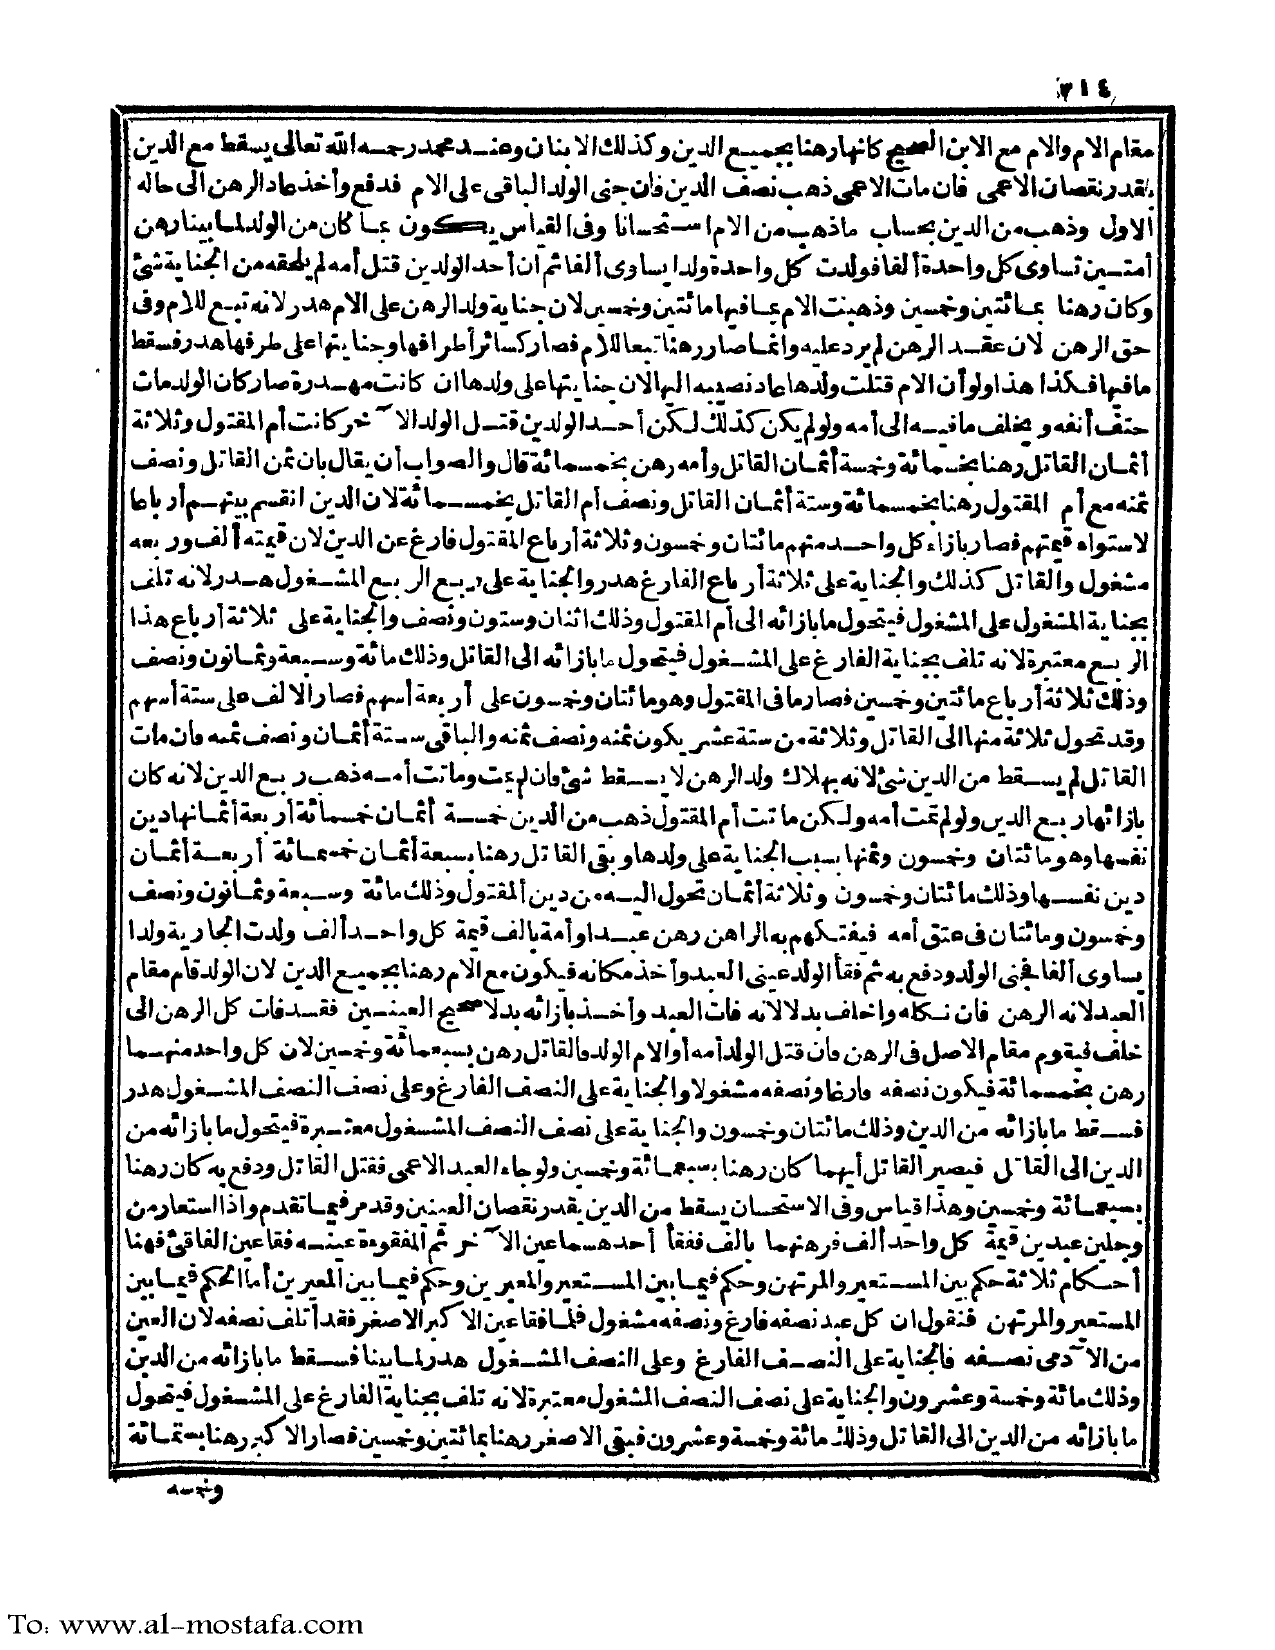 ٣١٤
مقام الام والام مع الابن الصحيح كانها رهنا بجميع الدين وكذلك الابنان وعند محمد رحمه الله تعالى يسقط مع الدين
بقدر نقصان الاعمى فان مات الاعمى ذهب نصف الدين فان جنى الولد الباقى على الام فدفع وأخذ عاد الرهن الى حاله
الاول وذهب من الدين بحساب ماذهب من الام استحسانا وفى القياس يكون بما كان من الولد لما بينا رهن
أمتين تساوى كل واحدة ألفا فولدت كل واحدة ولدا يساوى ألفا ثم ان أحد الولدين قتل أمه لم يلحقه من الجناية شئ
وكان رهنا بمائتين وخمسين وذهبت الام بما فيها مائتين وخمسين لان جناية ولد الرهن على الام هدر لانه تبع للام وفى
حق الرهن لان عقد الرهن لم يرد عليه وانما صار رهنا تبعا للام فصار كسائر أطرافها وجنايتها على طرفها هدر فسقط
ما فيها فكذا هذا ولو أن الام قتلت ولدها عاد نصيبه اليها لان جنايتها على ولدها ان كانت مهدرة صار كان الولد مات
حتف أنفه ويخلف ما فيه الى أمه ولو لم يكن كذلك لكن أحد الولدين قتل الولد الآخر كانت أم المقتول وثلاثة
أثمان القاتل رهنا بخمسمائة وخمسة أثمان القاتل وأمه رهن بخمسمائة قال والصواب أن يقال بان ثمن القاتل ونصف
ثمنه مع أم المقتول رهنا بخمسمائة وستة أثمان القاتل ونصف أم القاتل بخمسمائة لان الدين انقسم بينهم أرباعا
لاستواء قيمتهم فصار بازاء كل واحد منهم مائتان وخمسون وثلاثة أرباع المقتول فارغ عن الدين لان قيمته ألف وربعه
مشغول والقاتل كذلك والجناية على ثلاثة أرباع الفارغ هدر والجناية على ربع الربع المشغول هدر لانه تلف
بجناية المشغول على المشغول فيتحول ما بازائه الى أم المقتول وذلك اثنان وستون ونصف والجناية على ثلاثة أرباع هذا
الربع معتبرة لانه تلف بجناية الفارغ على المشغول فيتحول ما بازائه الى القاتل وذلك مائة وسبعة وثمانون ونصف
وذلك ثلاثة أرباع مائتين وخمسين فصار ما فى المقتول وهو مائتان وخمسون على أربعة أسهم فصار الالف على ستة أسهم
وقد تحول ثلاثة منها الى القاتل وثلاثة من ستة عشر يكون ثمنه ونصف ثمنه والباقى ستة أثمان ونصف ثمنه فان مات
القاتل لم يسقط من الدين شئ لانه بهلاك ولد الرهن لا يسقط شئ فان لم يمت وماتت أمه ذهب ربع الدين لانه كان
بازائها ربع الدين ولو لم تمت أمه ولكن ماتت أم المقتول ذهب من الدين خمسة أثمان خمسمائة أربعة أثمانها دين
نفسها وهو مائتان وخمسون وثمنها بسبب الجناية على ولدها وبقى القاتل رهنا بسبعة أثمان خمسمائة أربعة أثمان
دين نفسها وذلك مائتان وخمسون وثلاثة أثمان تحول اليه من دين المقتول وذلك مائة وسبعة وثمانون ونصف
وخمسون ومائتان فى عتق أمه فيفتكهم به الراهن رهن عبدا وأمة بالف قيمة كل واحد ألف ولدت الجارية ولدا
يساوى ألفا فجنى الولد ودفع به ثم فقأ الولد عينى العبد وأخذ مكانه فيكون مع الام رهنا بجميع الدين لان الولد قام مقام
العبد لانه الرهن فان نكاه واخلف بدلا لانه فات العبد وأخذ بازائه بدلا صحيح العينين فقد فات كل الرهن الى
خلف فيقوم مقام الاصل فى الرهن فان قتل الولد أمه أو الام الولد فالقاتل رهن بسبعمائة وخمسين لان كل واحد منهما
رهن بخمسمائة فيكون نصفه فارغا ونصفه مشغولا والجناية على النصف الفارغ وعلى نصف النصف المشغول هدر
فسقط ما بازائه من الدين وذلك مائتان وخمسون والجناية على نصف النصف المشغول معتبرة فيتحول ما بازائه من
الدين الى القاتل فيصير القاتل أيهما كان رهنا بسبعمائة وخمسين ولو جاء العبد الاعمى فقتل القاتل ودفع به كان رهنا
بسبعمائة وخمسين وهذا قياس وفى الاستحسان يسقط من الدين بقدر نقصان العينين وقد مر فيما تقدم واذا استعار من
رجلين عبدين قيمة كل واحد ألف فرهنهما بالف ففقأ أحدهما عين الآخر ثم المفقوءة عينه فقأ عين الفاقئ فهنا
أحكام ثلاثة حكم بين المستعير والمرتهن وحكم فيما بين المستعير والمعيرين وحكم فيما بين المعيرين أما الحكم فيما بين
المستعير والمرتهن فنقول ان كل عبد نصفه فارغ ونصفه مشغول فلما فقأ عين الاكبر الاصغر فقد أتلف نصفه لان العين
من الآدمى نصفه فالجناية على النصف الفارغ وعلى النصف المشغول هدر لما بينا فسقط ما بازائه من الدين
وذلك مائة وخمسة وعشرون والجناية على نصف النصف المشغول معتبرة لانه تلف بجناية الفارغ على المشغول فيتحول
ما بازائه من الدين الى القاتل وذلك مائة وخمسة وعشرون فبقى الاصغر رهنا بمائتين وخمسين فصار الاكبر رهنا بستمائة
وخمسة
To: www.al-mostafa.com